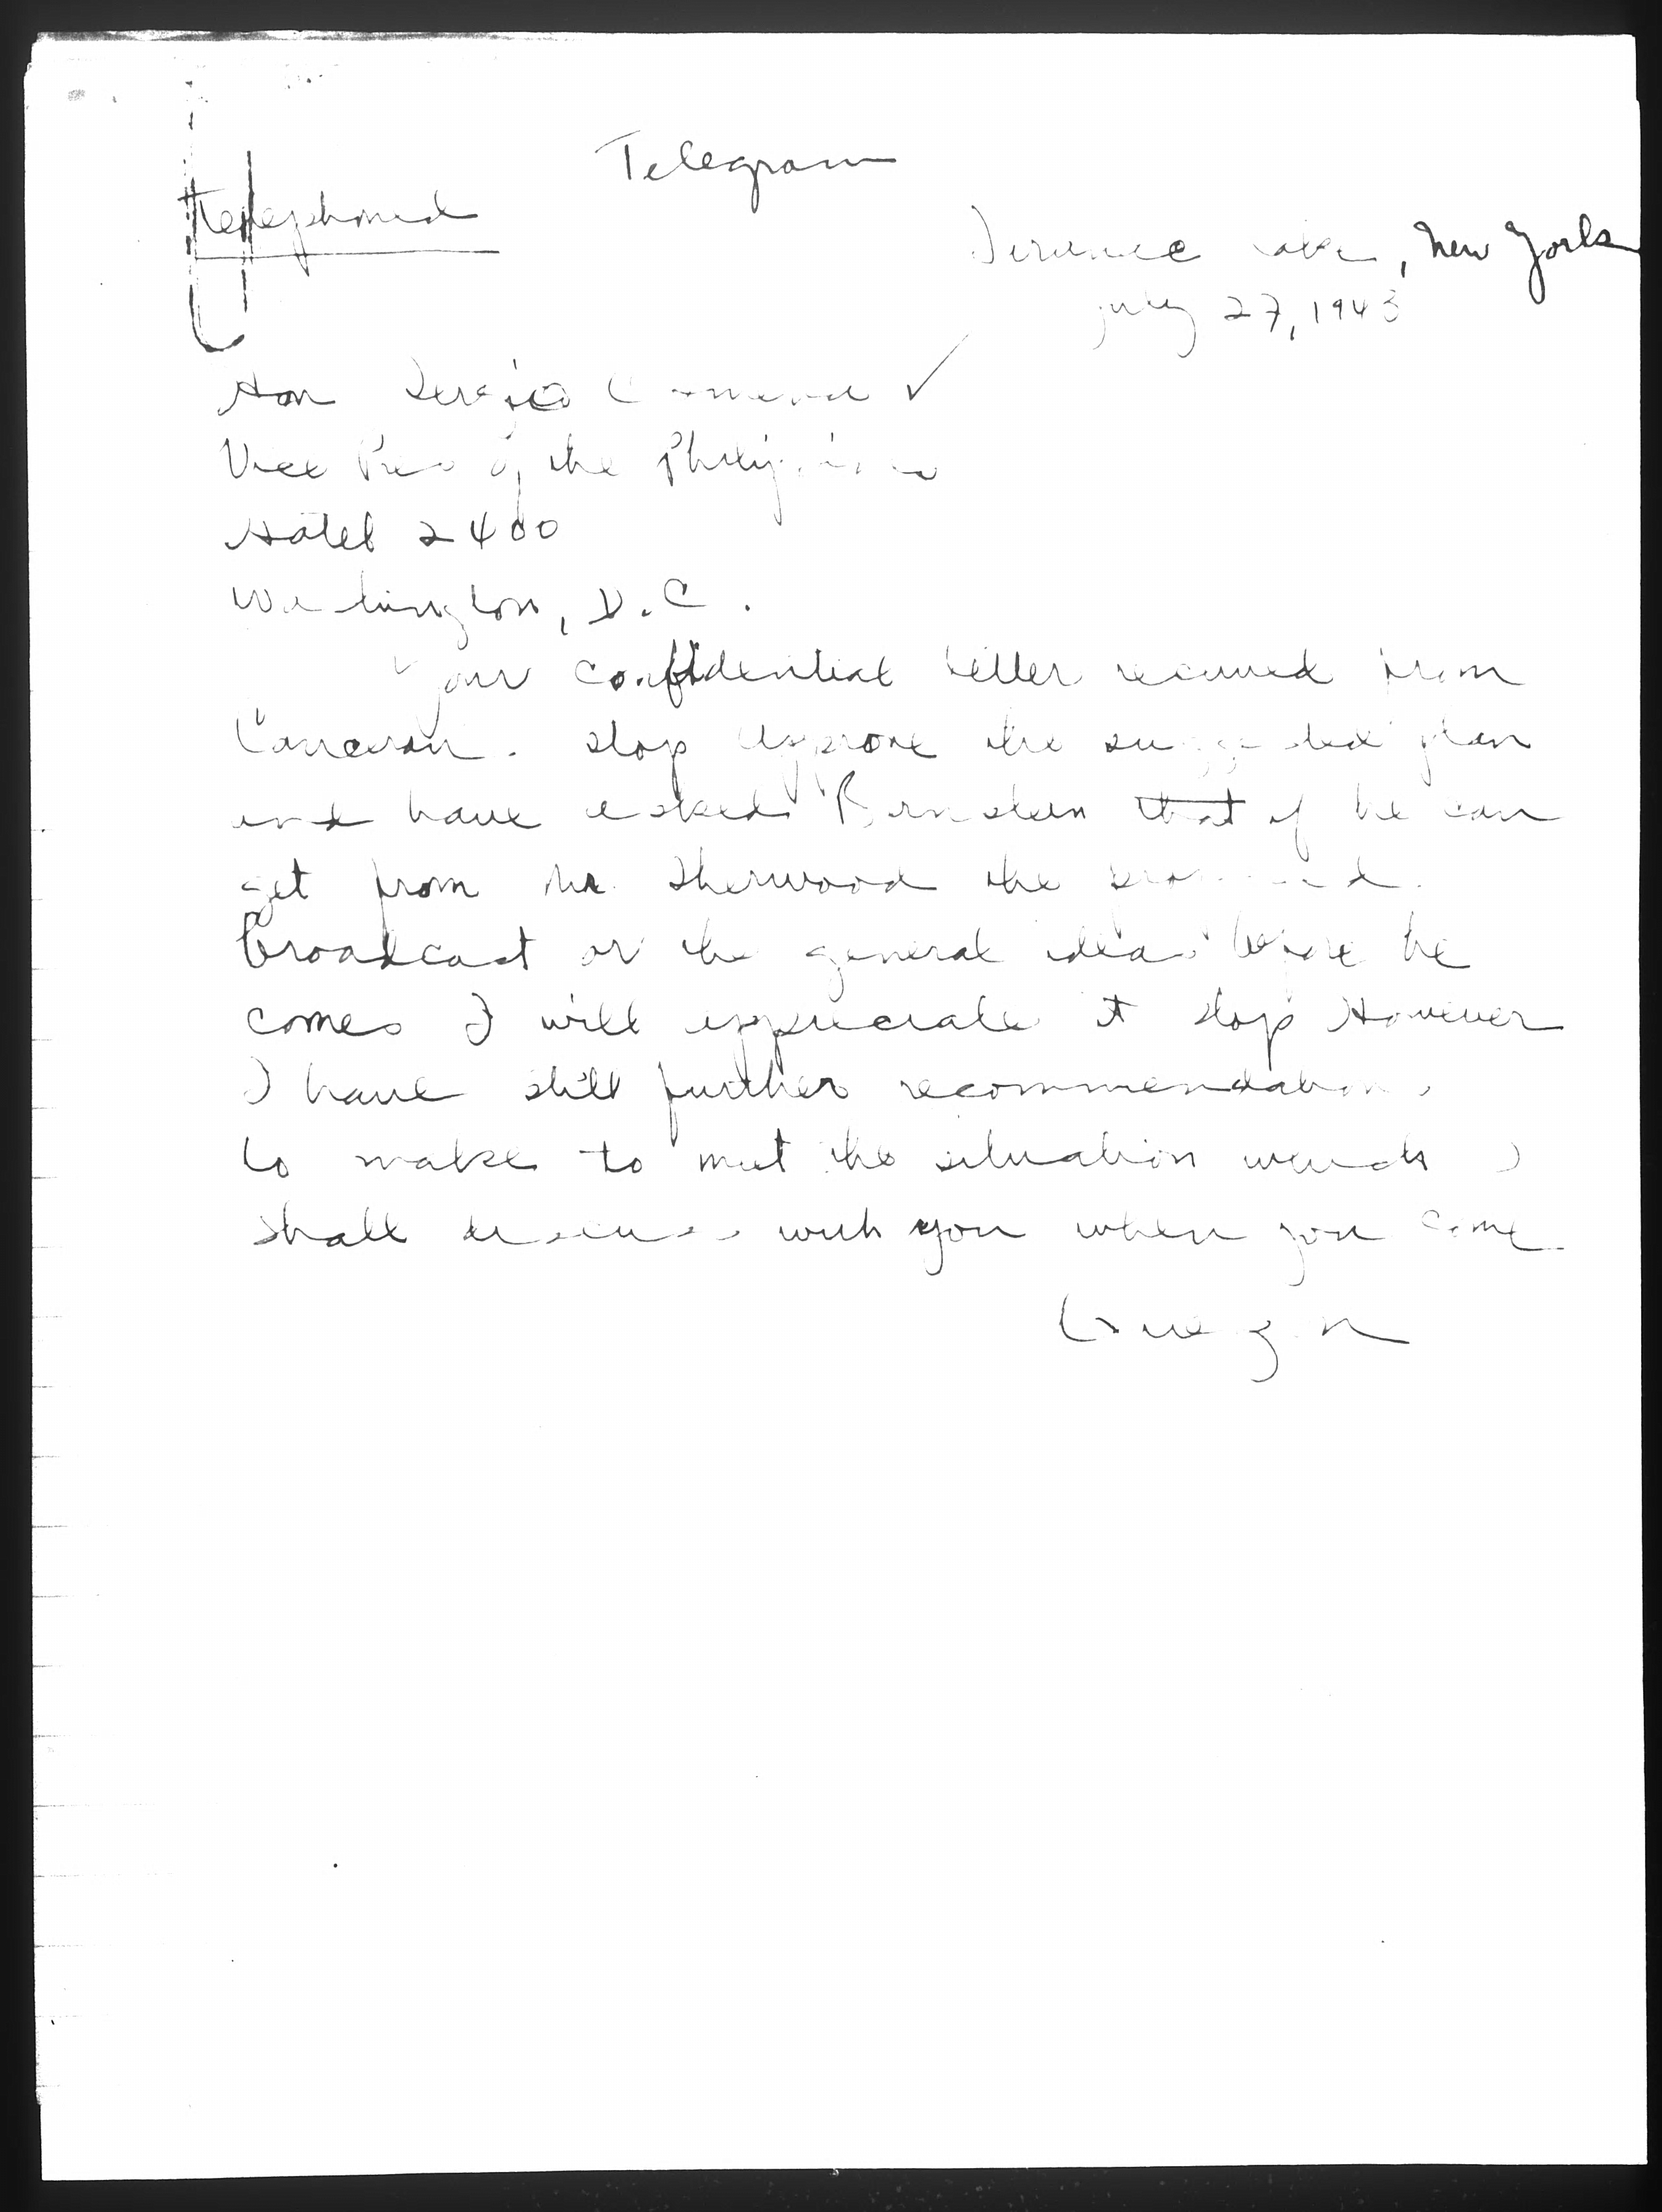 Telegram
Telephoned
Saranac Lake, New York
July 27, 1943
Hon Sergio Osmena
Vice Pres of the Philippines
Hotel 2400
Washington, D.C.
Your confidential letter received from
Canceran. Stop Approve the suggested plan
and have asked Bernstein that if he can
get from Mr. Sherwood the proposed
broadcast or the general ideas before he
comes I will appreciate it stop However
I have still further recommendations
to make to meet the situation which I
shall discuss with you when you come
Quezon